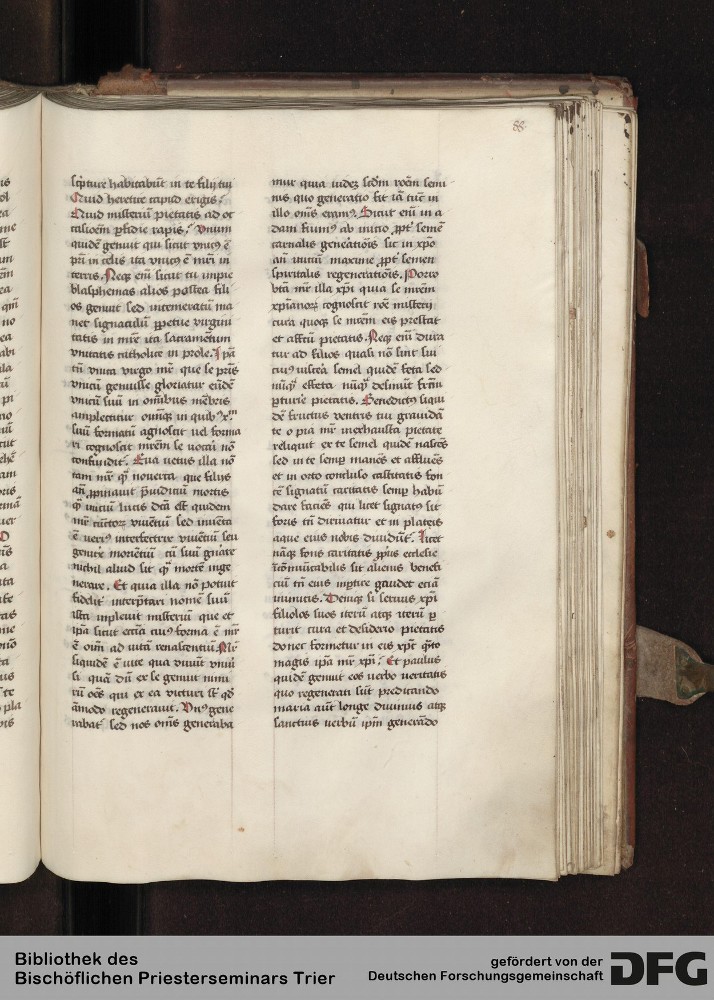 88.
scripture habitabūt in te filij tui
Quid heretice caput erigis?
Quid misteriū pietatis ad oc
casioēm ꝑfidie rapis? Vnum
quidē genuit qui sicut vnicꝰ ē
pr̄i in celis ita vnicꝰ ē mr̄i in
terris. Neqꝫ eni sicut tu impie
blasphemas alios postea fili
os genuit sed intemeratū ma
net signaculū ꝑpetue virgini
tatis in mr̄e ita sacramētum
vnitatis catholice in prole. Ipa
tn̄ vnica virgo mr̄ que se pr̄is
vnicū genuisse gloriatur eūdē
vnicū suū in om̄ibus mēbris
amplectitur
suū formatū agnoscit vel forma
ri cognoscit mr̄em se vocari nō
confundit᷑. Eua vetus illa nō
tam mr̄ qᷓ nouerca que filijs
an̄ ꝓpinauit p̄iudiciū mortis
qᷓ iniciū lucis dc̄a est quidem
mr̄ cūctoꝝ viuētiū sed inuēta
ē veriꝰ interfectrix viuētiū seu
genitͥx morietiū cū suū gn̄are
nichil aliud sit qᷓ mortē inge
nerare. Et quia illa nō potuit
fideliť int̄pretari nomē suū
ista impleuit misteriū que et
ipa sicut ecc̄ia cuiꝰ forma ē mr̄
ē oīm ad vitā renascentiū. Mr̄
siquidē ē vite qua viuūt vniū
si quā dū ex se genuit nimi
rū oēs qui ex ea victuri st̄ qd̄
āmodo regenerauit. Vnꝰ gene
rabat᷑ sed nos om̄s generaba
mur quia videꝫ scd̄m roēm semi
nis quo generatio fit iā tūc in
illo om̄s eramꝰ. Sicut eni in a
dam fuimꝰ ab inicio ꝓpt̄ semē
carnalis gen̄eatiōis sic in xp̄o
an̄ iniciū maxime ꝓpt̄ semen
spiritalis regenerationis. Porro
bt̄ā mr̄ illa xp̄i quia se mr̄em
xp̄ianoꝝ cognoscit rōe misterij
cura quoqꝫ se mr̄em eis prestat
et affc̄tū pietatis. Neqꝫ eni dura
tur ad filios quasi nō sint sui
cuiꝰ viscera semel quidē feta sed
nūqᷓ effeta nūqᷓ desinūt fr̄m
ꝑturire pietatis. Benedictꝰ siqui
dē fructus ventris tui grauidā
te o pia mr̄ inexhausta pietate
reliquit ex te semel quidē nascēs
sed in te semꝑ manēs et affluēs
et in orto concluso castitatis fon
tē signatū caritatis semꝑ habū
dare faciēs qui licet signatꝰ sit
foris tn̄ diriuatur et in plateis
aque eius nobis diuidūt᷑. Licet
nāqꝫ fons caritatis ꝓpriꝰ ecclesie
īcōmūicabilis sit alienis benefi
ciū tn̄ eius inptire gaudet eciā
inimicis. Deniqꝫ si seruus xp̄i
filiolos suos iterū atqꝫ iterū ꝑ
turit cura et desiderio pietatis
donec formetur in eis xp̄c qͣto
magis ipa mr̄ xp̄i? Et paulus
quidē genuit eos verbo veritatis
quo regenerati sūt predicando
maria aūt longe diuinius atqꝫ
sanctius verbū ipm̄ generādo
Bibliothek des
Bischöflichen Priesterseminars Trier
gefördert von der
Deutschen Forschungsgemeinschaft
DFG